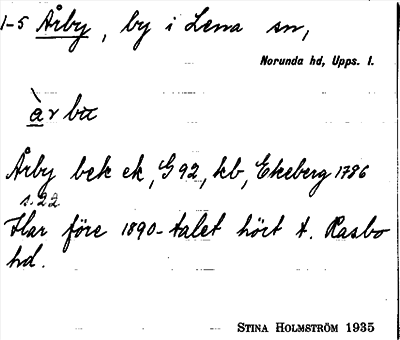 1-5 Årby, by i Lena sn,
Norunda hd, Upps. l.
àrbu
Årby bek ek, G 92, kb, Ekeberg 1786
s. 22
Har före 1890-talet hört t. Rasbo
hd.
STINA HOLMSTRÖM 1935